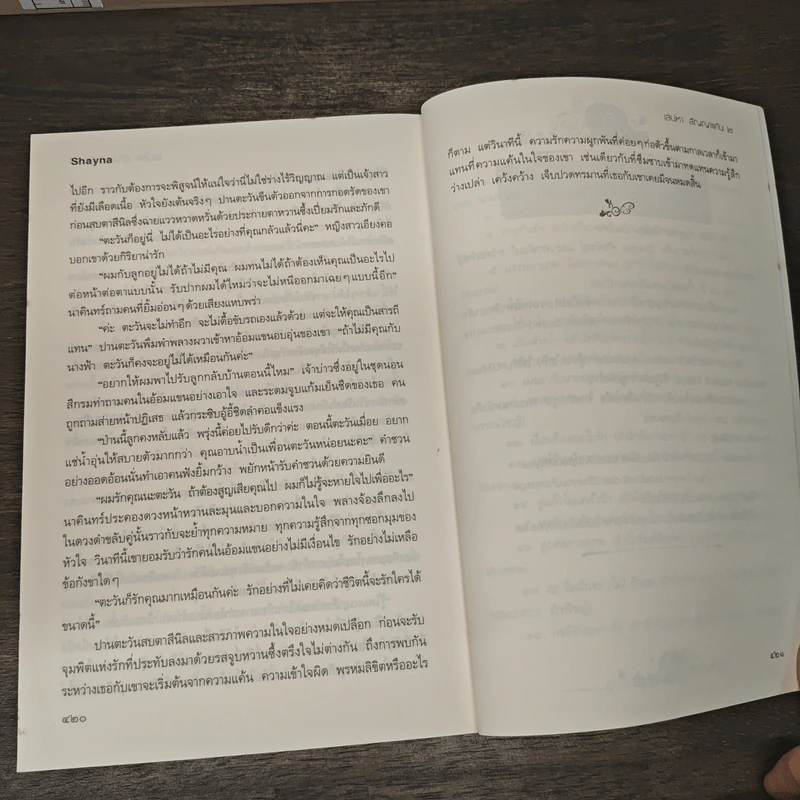 Shayna
ไปอีก ราวกับต้องการจะพิสูจน์ให้แน่ใจว่านี่ไม่ใช่ร่างไร้วิญญาณ แต่เป็นเจ้าสาว
ที่ยังมีเลือดเนื้อ หัวใจยังเต้นจริงๆ ปานตะวันขืนตัวออกจากการกอดรัดของเขา
ก่อนสบตาสีนิลซึ่งฉายแววหวาดหวั่นด้วยประกายตาหวานซึ้งเปี่ยมรักและภักดี
“ตะวันก็อยู่นี่ ไม่ได้เป็นอะไรอย่างที่คุณกลัวแล้วนี่คะ” หญิงสาวเอียงคอ
บอกเขาด้วยกิริยาน่ารัก
“ผมกับลูกอยู่ไม่ได้ถ้าไม่มีคุณ ผมทนไม่ได้ถ้าต้องเห็นคุณเป็นอะไรไป
ต่อหน้าต่อตาแบบนั้น รับปากผมได้ไหมว่าจะไม่หนีออกมาเฉยๆ แบบนี้อีก”
นาคินทร์ถามคนที่ยิ้มอ่อนๆ ด้วยเสียงแหบพร่า
“ค่ะ ตะวันจะไม่ทำอีก จะไม่ดื้อขับรถเองแล้วด้วย แต่จะให้คุณเป็นสารถี
แทน” ปานตะวันพึมพำพลางผวาเข้าหาอ้อมแขนอบอุ่นของเขา “ถ้าไม่มีคุณกับ
นางฟ้า ตะวันก็คงจะอยู่ไม่ได้เหมือนกันค่ะ”
“อยากให้ผมพาไปรับลูกกลับบ้านตอนนี้ไหม” เจ้าบ่าวซึ่งอยู่ในชุดนอน
สีกรมท่าถามคนในอ้อมแขนอย่างเอาใจ และระดมจูบแก้มเย็นชืดของเธอ คน
ถูกถามส่ายหน้าปฏิเสธ แล้วกระซิบอู้อี้ชิดลำคอแข็งแรง
“ป่านนี้ลูกคงหลับแล้ว พรุ่งนี้ค่อยไปรับดีกว่าค่ะ ตอนนี้ตะวันเมื่อย อยาก
แช่น้ำอุ่นให้สบายตัวมากกว่า คุณอาบน้ำเป็นเพื่อนตะวันหน่อยนะคะ” คำชวน
อย่างออดอ้อนนั่นทำเอาคนฟังยิ้มกว้าง พยักหน้ารับคำชวนด้วยความยินดี
“ผมรักคุณนะตะวัน ถ้าต้องสูญเสียคุณไป ผมก็ไม่รู้จะหายใจไปเพื่ออะไร”
นาคินทร์ประคองดวงหน้าหวานละมุนและบอกความในใจ พลางจ้องลึกลงไป
ในดวงตาขลับคู่นั้นราวกับจะย้ำทุกความหมาย ทุกความรู้สึกจากทุกซอกมุมของ
หัวใจ วินาทีนี้เขายอมรับว่ารักคนในอ้อมแขนอย่างไม่มีเงื่อนไข รักอย่างไม่เหลือ
ข้อกังขาใดๆ
“ตะวันก็รักคุณมากเหมือนกันค่ะ รักอย่างที่ไม่เคยคิดว่าชีวิตนี้จะรักใครได้
ขนาดนี้”
ปานตะวันสบตาสีนิลและสารภาพความในใจอย่างหมดเปลือก ก่อนจะรับ
จุมพิตแห่งรักที่ประทับลงมาด้วยรสจูบหวานซึ้งตรึงใจไม่ต่างกัน ถึงการพบกัน
ระหว่างเธอกับเขาจะเริ่มต้นจากความแค้น ความเข้าใจผิด พรหมลิขิตหรืออะไร
๔๒๐
เสน่หา สัญญาแค้น ๒
ก็ตาม แต่วินาทีนี้ ความรักความผูกพันที่ค่อยๆ ก่อตัวขึ้นตามกาลเวลาก็เข้ามา
แทนที่ความแค้นในใจของเขา เช่นเดียวกับที่ซึมซาบเข้ามาทดแทนความรู้สึก
ว่างเปล่า เคว้งคว้าง เจ็บปวดทรมานที่เธอกับเขาเคยมีจนหมดสิ้น
๔๒๑